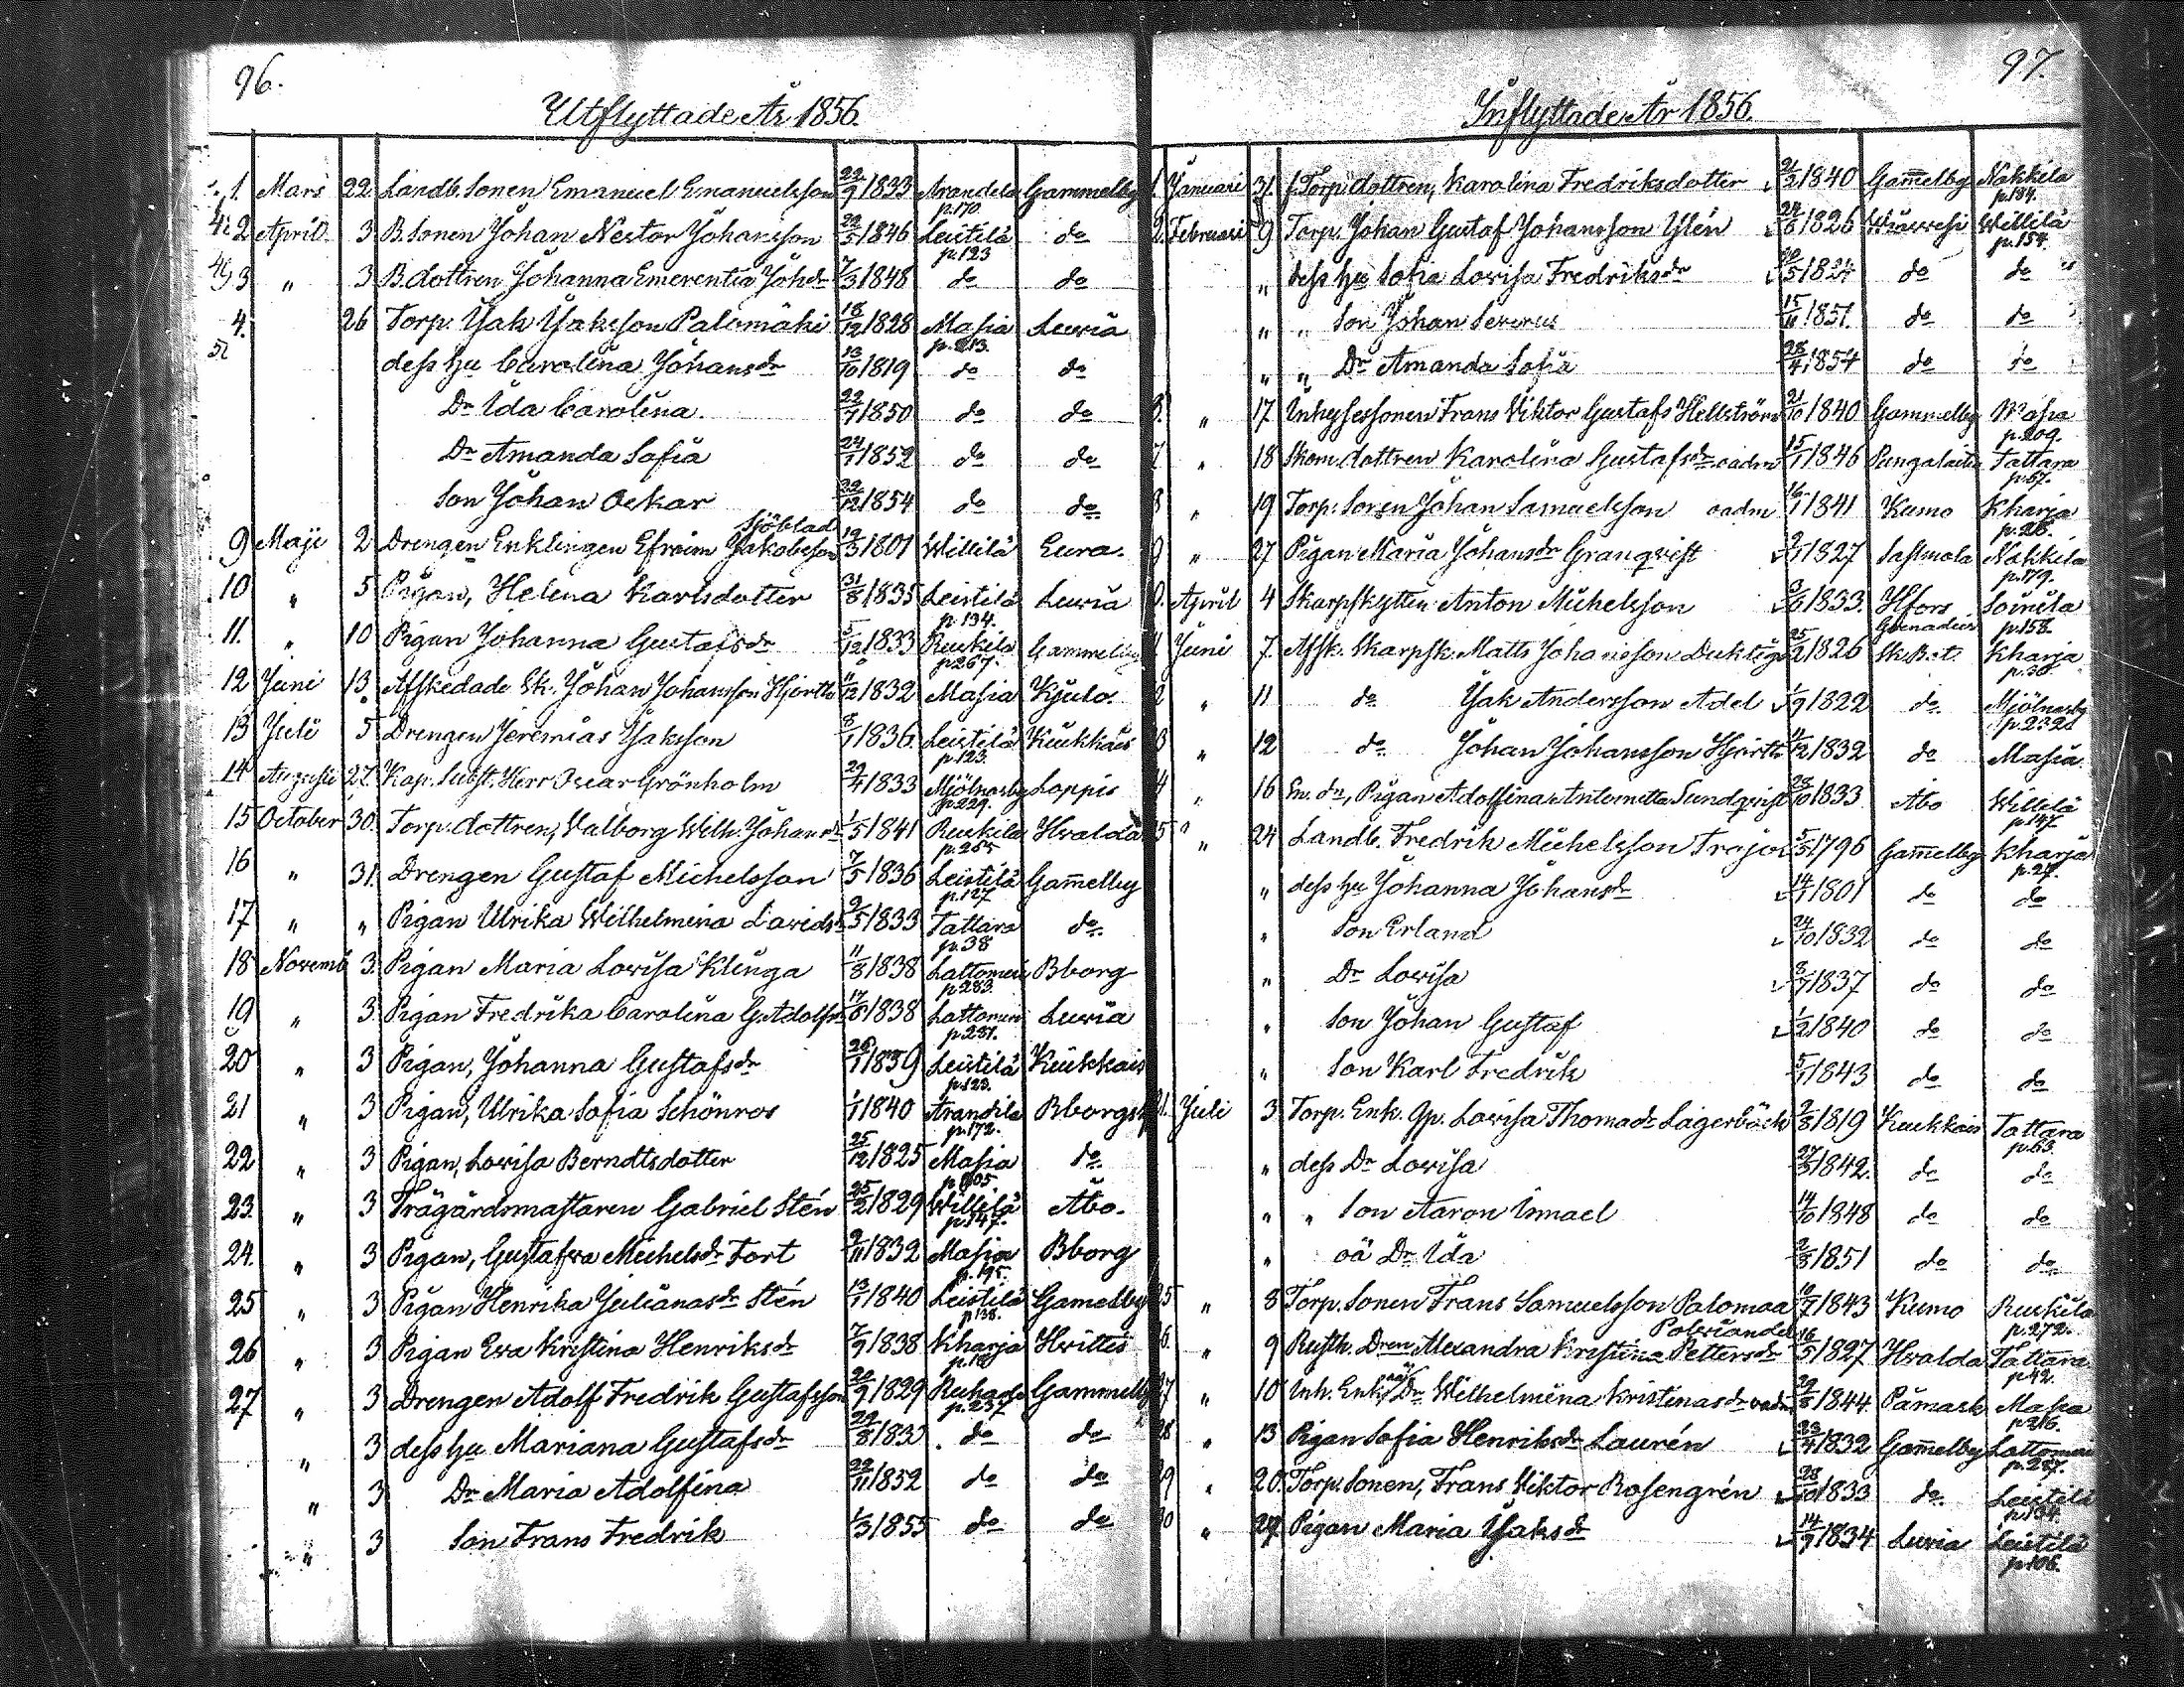 96.
Utflyttade År 1856.
1. Mars 22 Landb. Sonen Emanuel Emanuelsson 22/9 1833 Arandila p.170. Gammelby
2 April 3 B. Sonen Johan Nestor Johansson 22/5 1846 Leistilä p.123 do
3 " 3 B. dottren Johanna Emerentia Johdr 7/3 1848 do do
4. 26 Torp. Isak Isaksson Palomäki 18/12 1828 Masia p.213. Luvia
dess hu Carolina Johansdr 13/10 1819 do do
Dr Ida Carolina. 22/7 1850 do do
Dr Amanda Sofia 24/1 1852 do do
Son Johan Oskar 22/12 1854 do do
9 Maji 2 Drengen Enklingen Efraim Jakobsson Sjöblad 19/3 1801 Willilä Eura.
10 " 5 Pigan, Helena Karlsdotter 31/8 1835 Leistilä p.134. Luvia
11. " 10 Pigan Johanna Gustafsdr 5/12 1833 Ruskila p.267. Gammelby
12 Juni 13 Afskedade Sk. Johan Johansson Hjerta 11/12 1832 Masia Kjulo.
13 Juli 5 Drengen Jeremias Isaksson 8/1 1836. Leistilä p.123. Kiukkais
14 Augusti 27. Kap. Subst. Herr Oscar Grönholm 29/4 1833 Mjölnarby p.229. Loppis
15 October 30 Torp. dottren, Valborg Wilh. Johansdr 1/5 1841 Ruskila p.265 Hvalda
16 " 31. Drengen Gustaf Michelsson 7/5 1836 Leistilä p.127 Gamelby
17 " " Pigan Ulrika Wilhelmina Davidsdr 2/5 1833 Tattara p.38 do
18 Novemb 3. Pigan Maria Lovisa Klinga 11/8 1838 Lattomeri p.283. Bborg
19 " 3. Pigan Fredrika Carolina G. Adolfsdr 17/8 1838 Lattomeri p.281. Luvia
20 " 3 Pigan, Johanna Gustafsdr 26/1 1839 Leistilä p.123. Kiukkais
21 " 3 Pigan, Ulrika Sofia Schönros 1/1 1840 Arandila p.172. Bborgs
22 " 3 Pigan, Lovisa Berndtsdotter 25/12 1825 Masia do
23. " 3 Trägårdsmastaren Gabriel Stén 25/2 1829 Willilä p.147. Åbo.
24. " 3 Pigan, Gustafva Michelsdr Fort 2/11 1832 Masia p.195. Bborg
25 " 3 Pigan Henrika Julianasdr Stén 13/1 1840 Leistilä p.138. Gamelby
26 " 3 Pigan Eva Kristina Henriksdr 7/9 1838 Kharja Hvittis
27 " 3 Drengen Adolf Fredrik Gustafsson 22/9 1829 p.237 Gammelby
" 3 dess hu Mariana Gustafsdr do do
" 3 Dr Maria Adolfina 22/11 1852 do do
" 3 Son Frans Fredrik 1/3 1855 do do
97.
Inflyttade År 1856.
1. Januari 31. f. Torp. dottren, Karolina Fredriksdotter 1840 Gamelby Nakkila p.184.
2. Februari 9 Torp. Johan Gustaf Johansson Ylén 1826 Willilä p.154.
" dess hu Sofia Lovisa Fredriksdr 1824 do do
" " Son Johan Severus 1851. do do
" " Dr Amanda Sofia 28/4 1854 do do
" 17 Inhysessonen Frans Viktor Gustafs Hellström 21/10 1840 Gammelby Masia p.209.
7. " 18 Skom. dottren Karolina Gustafsdr oadm 15/1 1846 Tattara p.67.
8 " 19 Torp: Sonen Johan Samuelsson oadm 1841 Kumo Kharja p.28.
9 " 27 Pigan Maria Johansdr Granqvist 1827 Sastmola Nakkila p.179.
April 4 Skarpskytten Anton Michelsson 1833. Hfors Soinila p.158.
Juni 7. Afsk. Skarpsk. Matts Johansson Duktig 25/2 1826 Grenadier Sk.B.t. Kharja
2 " 11 do Isak Andersson Adel 1/9 1822 do Mjölnarby p.232
3 " 12 do Johan Johansson Hjerta 11/12 1832 do Masia.
4 " 16 En. dr, Pigan Adolfina Antonetta Sundqvist 28/10 1833 Åbo Willilä p.147
5 " 24 Landb. Fredrik Michelsson Trajoi 5/5 1796 Gamelby Kharja
" dess hu Johanna Johansdr 14/1 1801 do do
" Son Erland 24/10 1832 do do
" Dr Lovisa 1837 do do
" Son Johan Gustaf 1/2 1840 do do
" Son Karl Fredrik 5/1 1843 do do
21. Juli 3 Torp. Enk. Qp. Lovisa Thomasdr Lagerbäck 1819 Kiukkais Tattara p.63.
" dess Dr Lovisa 1842. do do
" " Son Aaron Ismael 14/10 1848 do do
" oä Dr Ida 2/8 1851 do do
25 " 8 Torp. Sonen Frans Samuelsson Palomaa 1843 Kumo Ruskila p.272.
26. " 9 Rusth. Dren Alexandra Kristina Pettersdr 16/5 1827 Hvalda Tattara p.42.
27 " 10 Inh. Enk. oä Dr Wilhelmina Kristinasdr oadm 29/8 1844. Påmark Masia p.216.
28 " 13 Pigan Sofia Henriksdr Laurén 23/4 1832 Gamelby Lattomeri p.287.
29 " 20. Torp. Sonen, Frans Viktor Rosengrén 28/10 1833 do Leistilä
30 " 29 Pigan Maria Isaksdr 14/9 1834 Luvia Leistilä p.106.